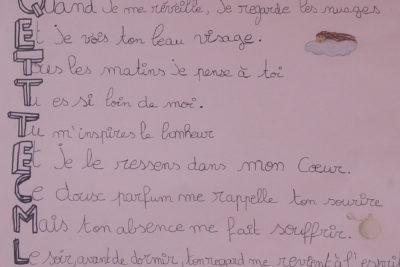 Quand je me réveille, je regarde les nuages
Et je vois ton beau visage.
Tous les matins je pense à toi
Tu es si loin de moi.
Tu m'inspires le bonheur
Et je le ressens dans mon Coeur.
Ce doux parfum me rappelle ton sourire
Mais ton absence me fait souffrir.
Le soir, avant de dormir, ton regard me revient à l'esprit